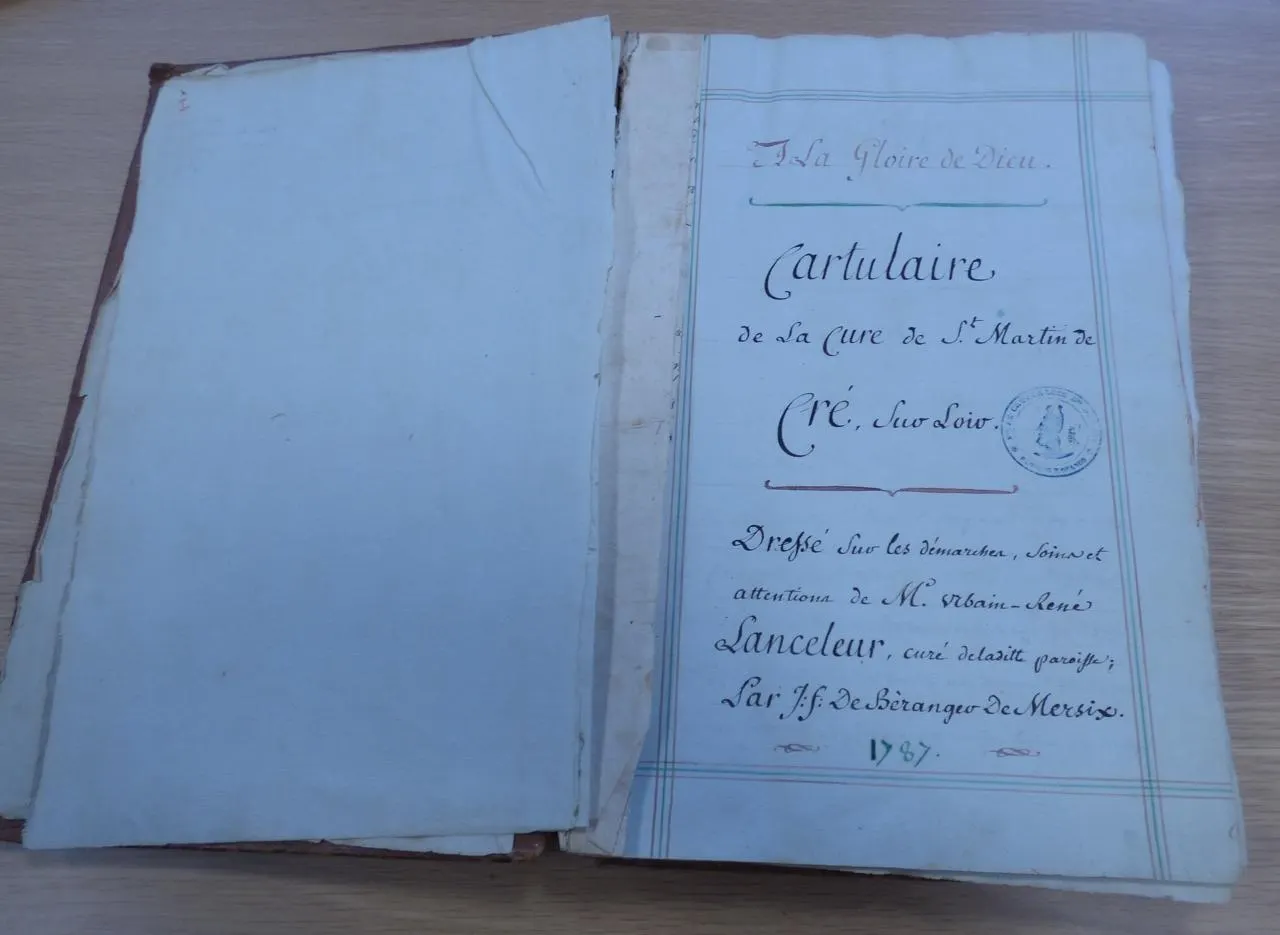 A La Gloire de Dieu.
Cartulaire
de La Cure de S.t Martin de
Cré, Sur Loir.
Dressé Sur les démarches, Soins et
attentions de M.r Urbain-René
Lanceleur, curé de laditte paroisse;
Par J: f: De Bèranger De Mersix.
1787.